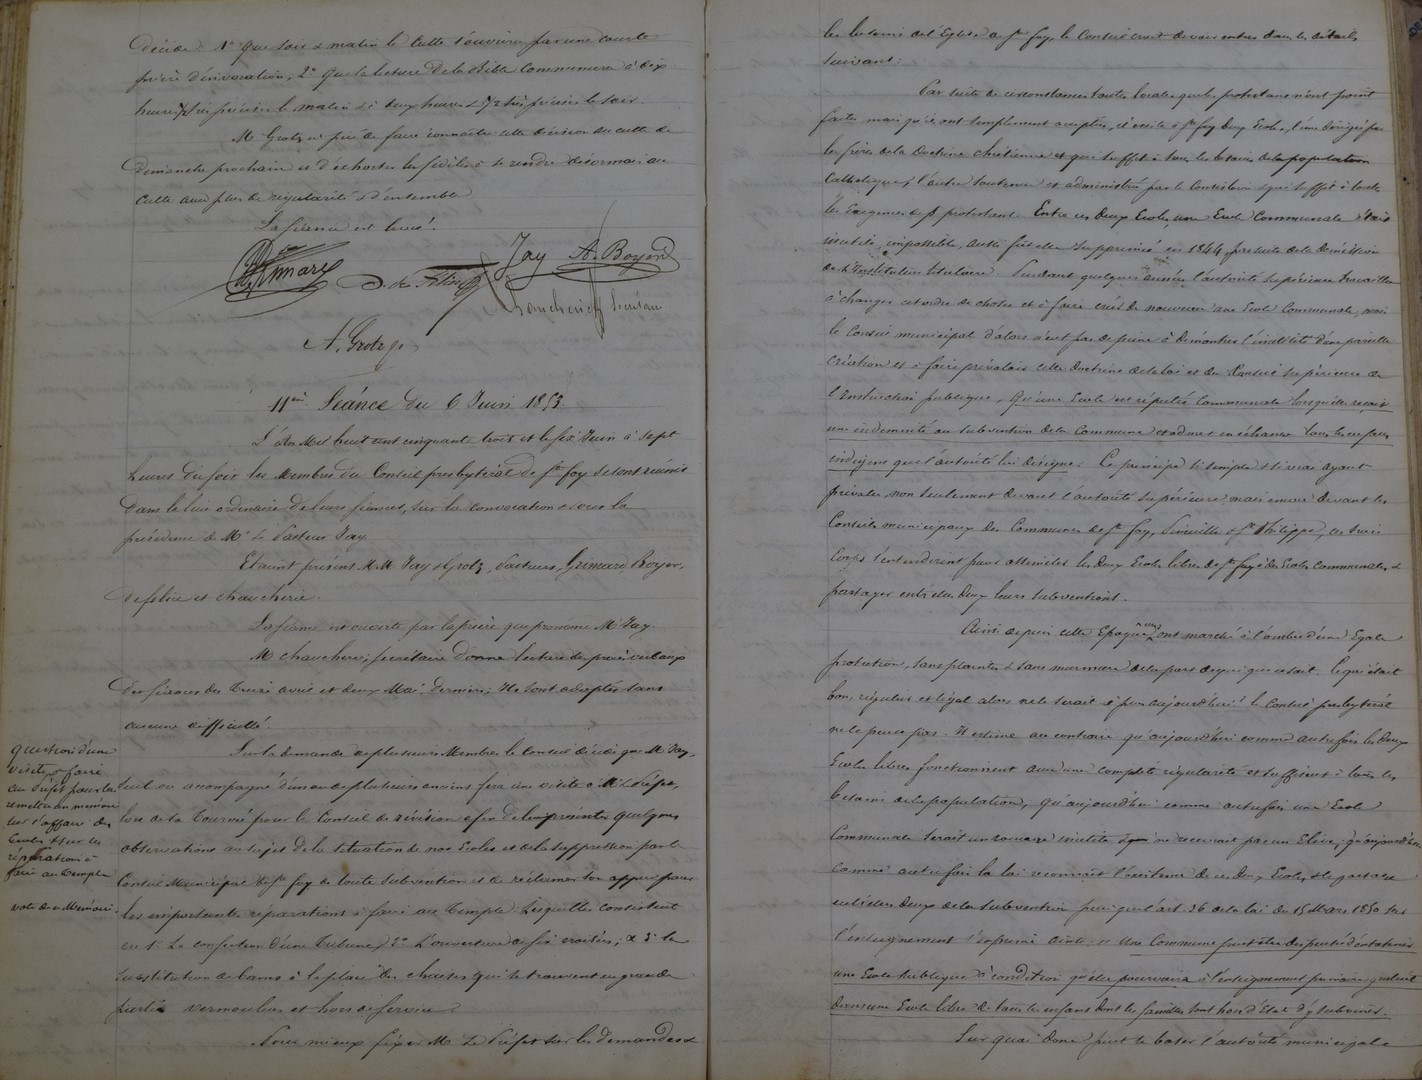 décide 1° que soir & matin le Culte s'ouvrira par une courte
prière d'invocation, 2° que la lecture de la Bible commencera à dix
heures 1/2 très précises le matin & à deux heures & 1/2 très précises le soir.
M. Grotz est prié de faire connaître cette décision au culte de
dimanche prochain et d'exhorter les fidèles à se rendre désormais au
culte avec plus de régularité & d'ensemble
La séance est levée.
Grimard
D. de Féline
Jay A. Boyer
Chaucherie secrétaire
A. Grotz p.
11me Séance du 6 Juin 1853.
L'an Mil huit cent cinquante trois et le six Juin à sept
heures du soir les Membres du Conseil presbytéral de Ste foy se sont réunis
dans le lieu ordinaire de leurs séances, sur la convocation & sous la
présidence de Mr le Pasteur Jay
Etaient présens MM Jay & Grotz, Pasteurs, Grimard, Boyer,
de féline et chaucherie.
La séance est ouverte par la prière que prononce Mr Jay.
M chaucherie, secrétaire donne lecture des procès verbaux
des séances des treize avril et deux Mai derniers; Ils sont adoptés sans
aucune difficulté.
question d'une
visite à faire
au Préfet pour lui
remettre un mémoire
sur l'affaire des
Ecoles & sur les
réparations à
faire au temple
vote de ce Mémoire.
Sur la demande de plusieurs Membres le Conseil décide que M Jay
seul ou accompagné d'un ou de plusieurs anciens fera une visite à Mr le Préfet,
lors de la tournée pour le Conseil de révision afin de lui présenter quelques
observations au sujet de la situation de nos Ecoles et de la suppression par le
Conseil Municipal de Ste foy de toute subvention et de réclamer son appui pour
les importantes réparations à faire au Temple lesquelles consistent
en 1° La confection d'une Tribune, 2° L'ouverture de six croisées, & 3° la
substitution de bancs à la place des chaises qui se trouvent en grande
partie vermoulues et hors de service.
Pour mieux fixer Mr Le Préfet sur les demandes &
les besoins de l'Eglise de Ste foy, le Conseil croit devoir entrer dans les détails
suivans:
Par suite de circonstances toutes locales que les protestans n'ont point
faites mais qu'ils ont simplement acceptées, il existe à Ste foy deux Ecoles, l'une dirigée par
les frères de la Doctrine chrétienne et qui suffit à tous les besoins de la population
Catholique; l'autre soutenue et administrée par le Consistoire & qui suffit à toutes
les Exigences des protestans. Entre ces deux Ecoles, une Ecole Communale était
inutile, impossible, aussi fut-elle supprimée en 1844, par suite de la démission
de l'Instituteur titulaire. Pendant quelques années l'autorité supérieure travailla
à changer cet ordre de choses et à faire créer de nouveau une Ecole Communale, mais
le Conseil municipal d'alors n'eut pas de peine à démontrer l'inutilité d'une pareille
création et à faire prévaloir cette doctrine de la loi et du Conseil supérieur de
l'Instruction publique, qu'une Ecole est réputée Communale lorsqu'elle reçoit
une indemnité ou subvention de la Commune et admet en échange tous les enfans
indigens que l'autorité lui désigne. Ce principe si simple & si vrai ayant
prévalu, non seulement devant l'autorité supérieure, mais encore devant les
Conseils municipaux des Communes de Ste foy, Pineuilh & St Philippe, ces trois
Corps s'entendirent pour assimiler les deux Ecoles libres de Ste foy à des Ecoles Communales, &
partager entr'elles deux leurs subventions.
Ainsi depuis cette Epoque elles ont marché à l'ombre d'une Egale
protection, sans plaintes & sans murmures de la part de qui que ce soit. Ce qui était
bon, régulier et légal alors ne le serait-il plus aujourd'hui? le Conseil presbytéral
ne le pense pas. Il estime au contraire qu'aujourd'hui comme autrefois les deux
Ecoles libres fonctionnent avec une complète régularité et suffisent à tous les
besoins de la population, qu'aujourd'hui comme autrefois une Ecole
Communale serait un rouage inutile & ne recevrait pas un Elève; qu'aujourd'hui
comme autrefois la loi reconnaît l'existence de ces deux Ecoles, & le partage
entr'elles deux de la subvention puisque l'art. 36 de la loi du 15 Mars 1850 sur
l'enseignement s'exprime ainsi : « Une Commune peut être dispensée d'entretenir
une Ecole publique à condition qu'elle pourvoira à l'enseignement primaire gratuit
dans une Ecole libre de tous les enfans dont les familles sont hors d'Etat d'y subvenir.
Sur quoi donc peut se baser l'autorité municipale